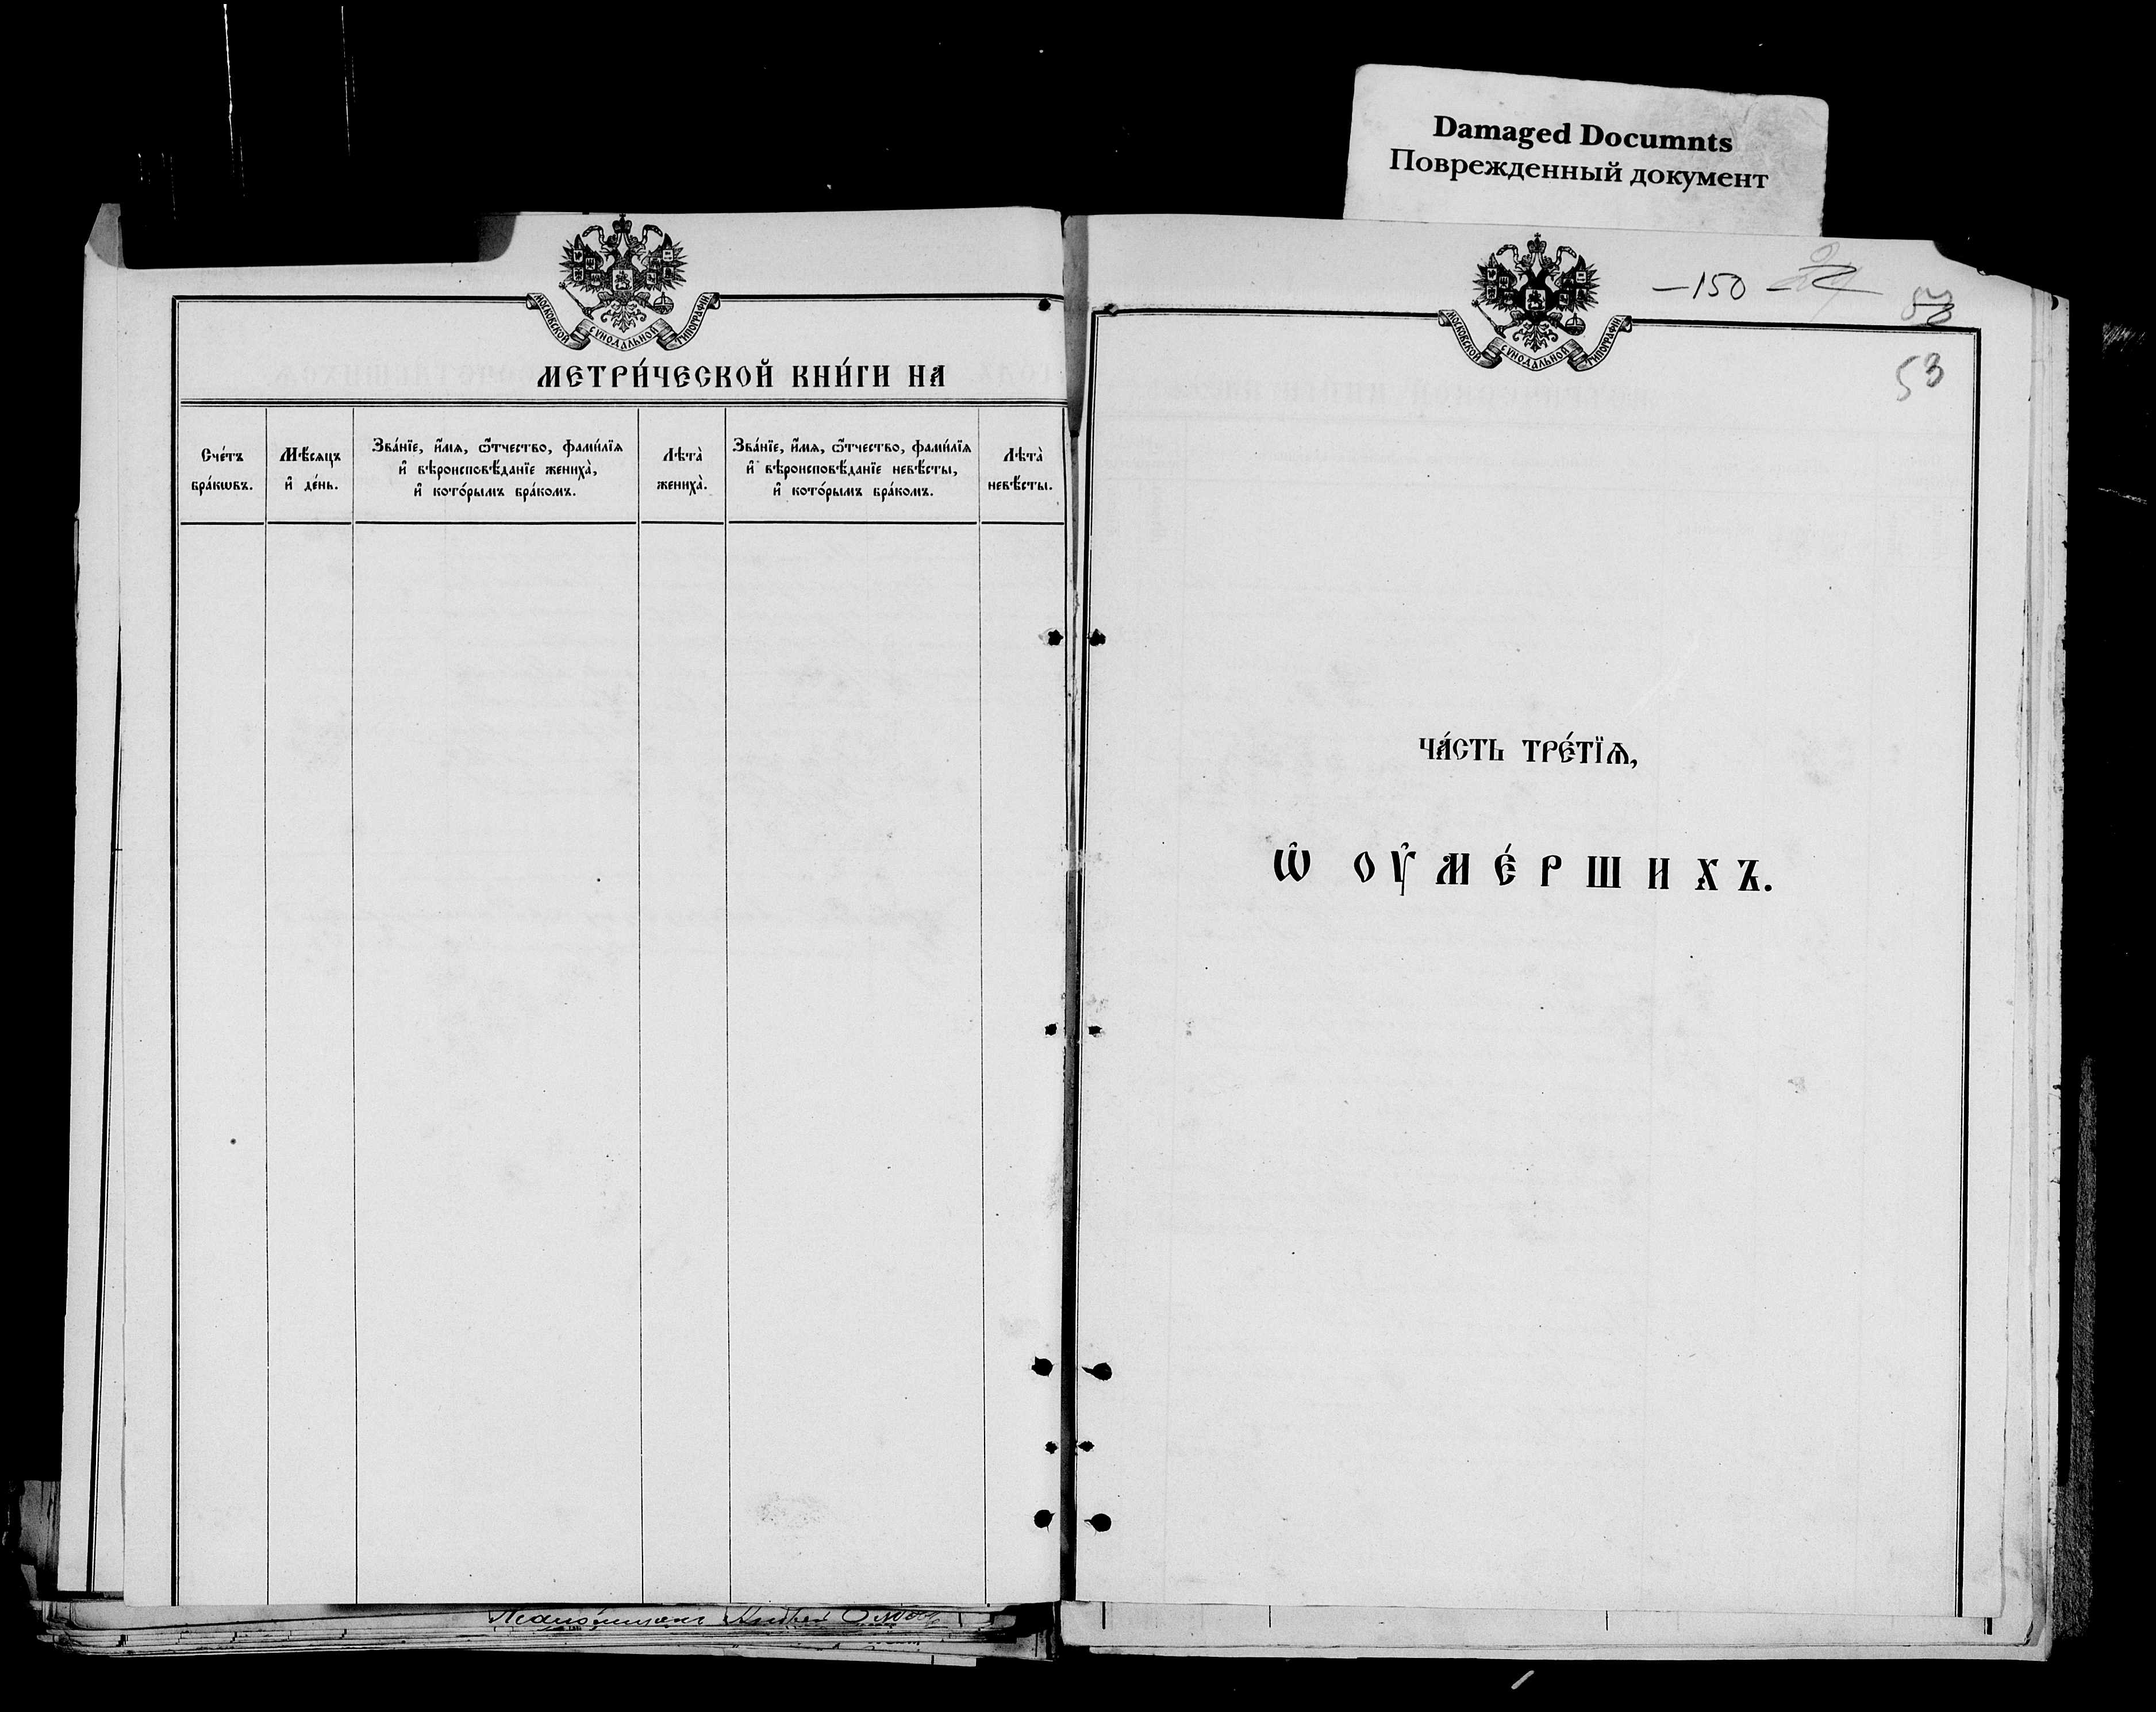 Damaged Documnts
Поврежденный документ
МОСКОВСКОЙ СѴНОДАЛЬНОЙ ТИПОГРАФІИ
МЕТРИ́ЧЕСКОЙ КНИ́ГИ НА
Сче́тъ бра́кѡвъ.
Мѣ́сяцъ и҆ де́нь.
Зва́нїе, и҆́мя, ѻ҆́тчество, фами́лїя
и҆ вѣроисповѣ́данїе жениха̀,
и҆ кото́рымъ бра́комъ.
Лѣта̀ жениха̀.
Зва́нїе, и҆́мя, ѻ҆́тчество, фами́лїя
и҆ вѣроисповѣ́данїе невѣ́сты,
и҆ кото́рымъ бра́комъ.
Лѣта̀ невѣ́сты.
МОСКОВСКОЙ СѴНОДАЛЬНОЙ ТИПОГРАФІИ
—150—
53
ЧА́СТЬ ТРЕ́ТЇѦ,
Ѡ҆ ОУ҆МЕ́РШИХЪ.